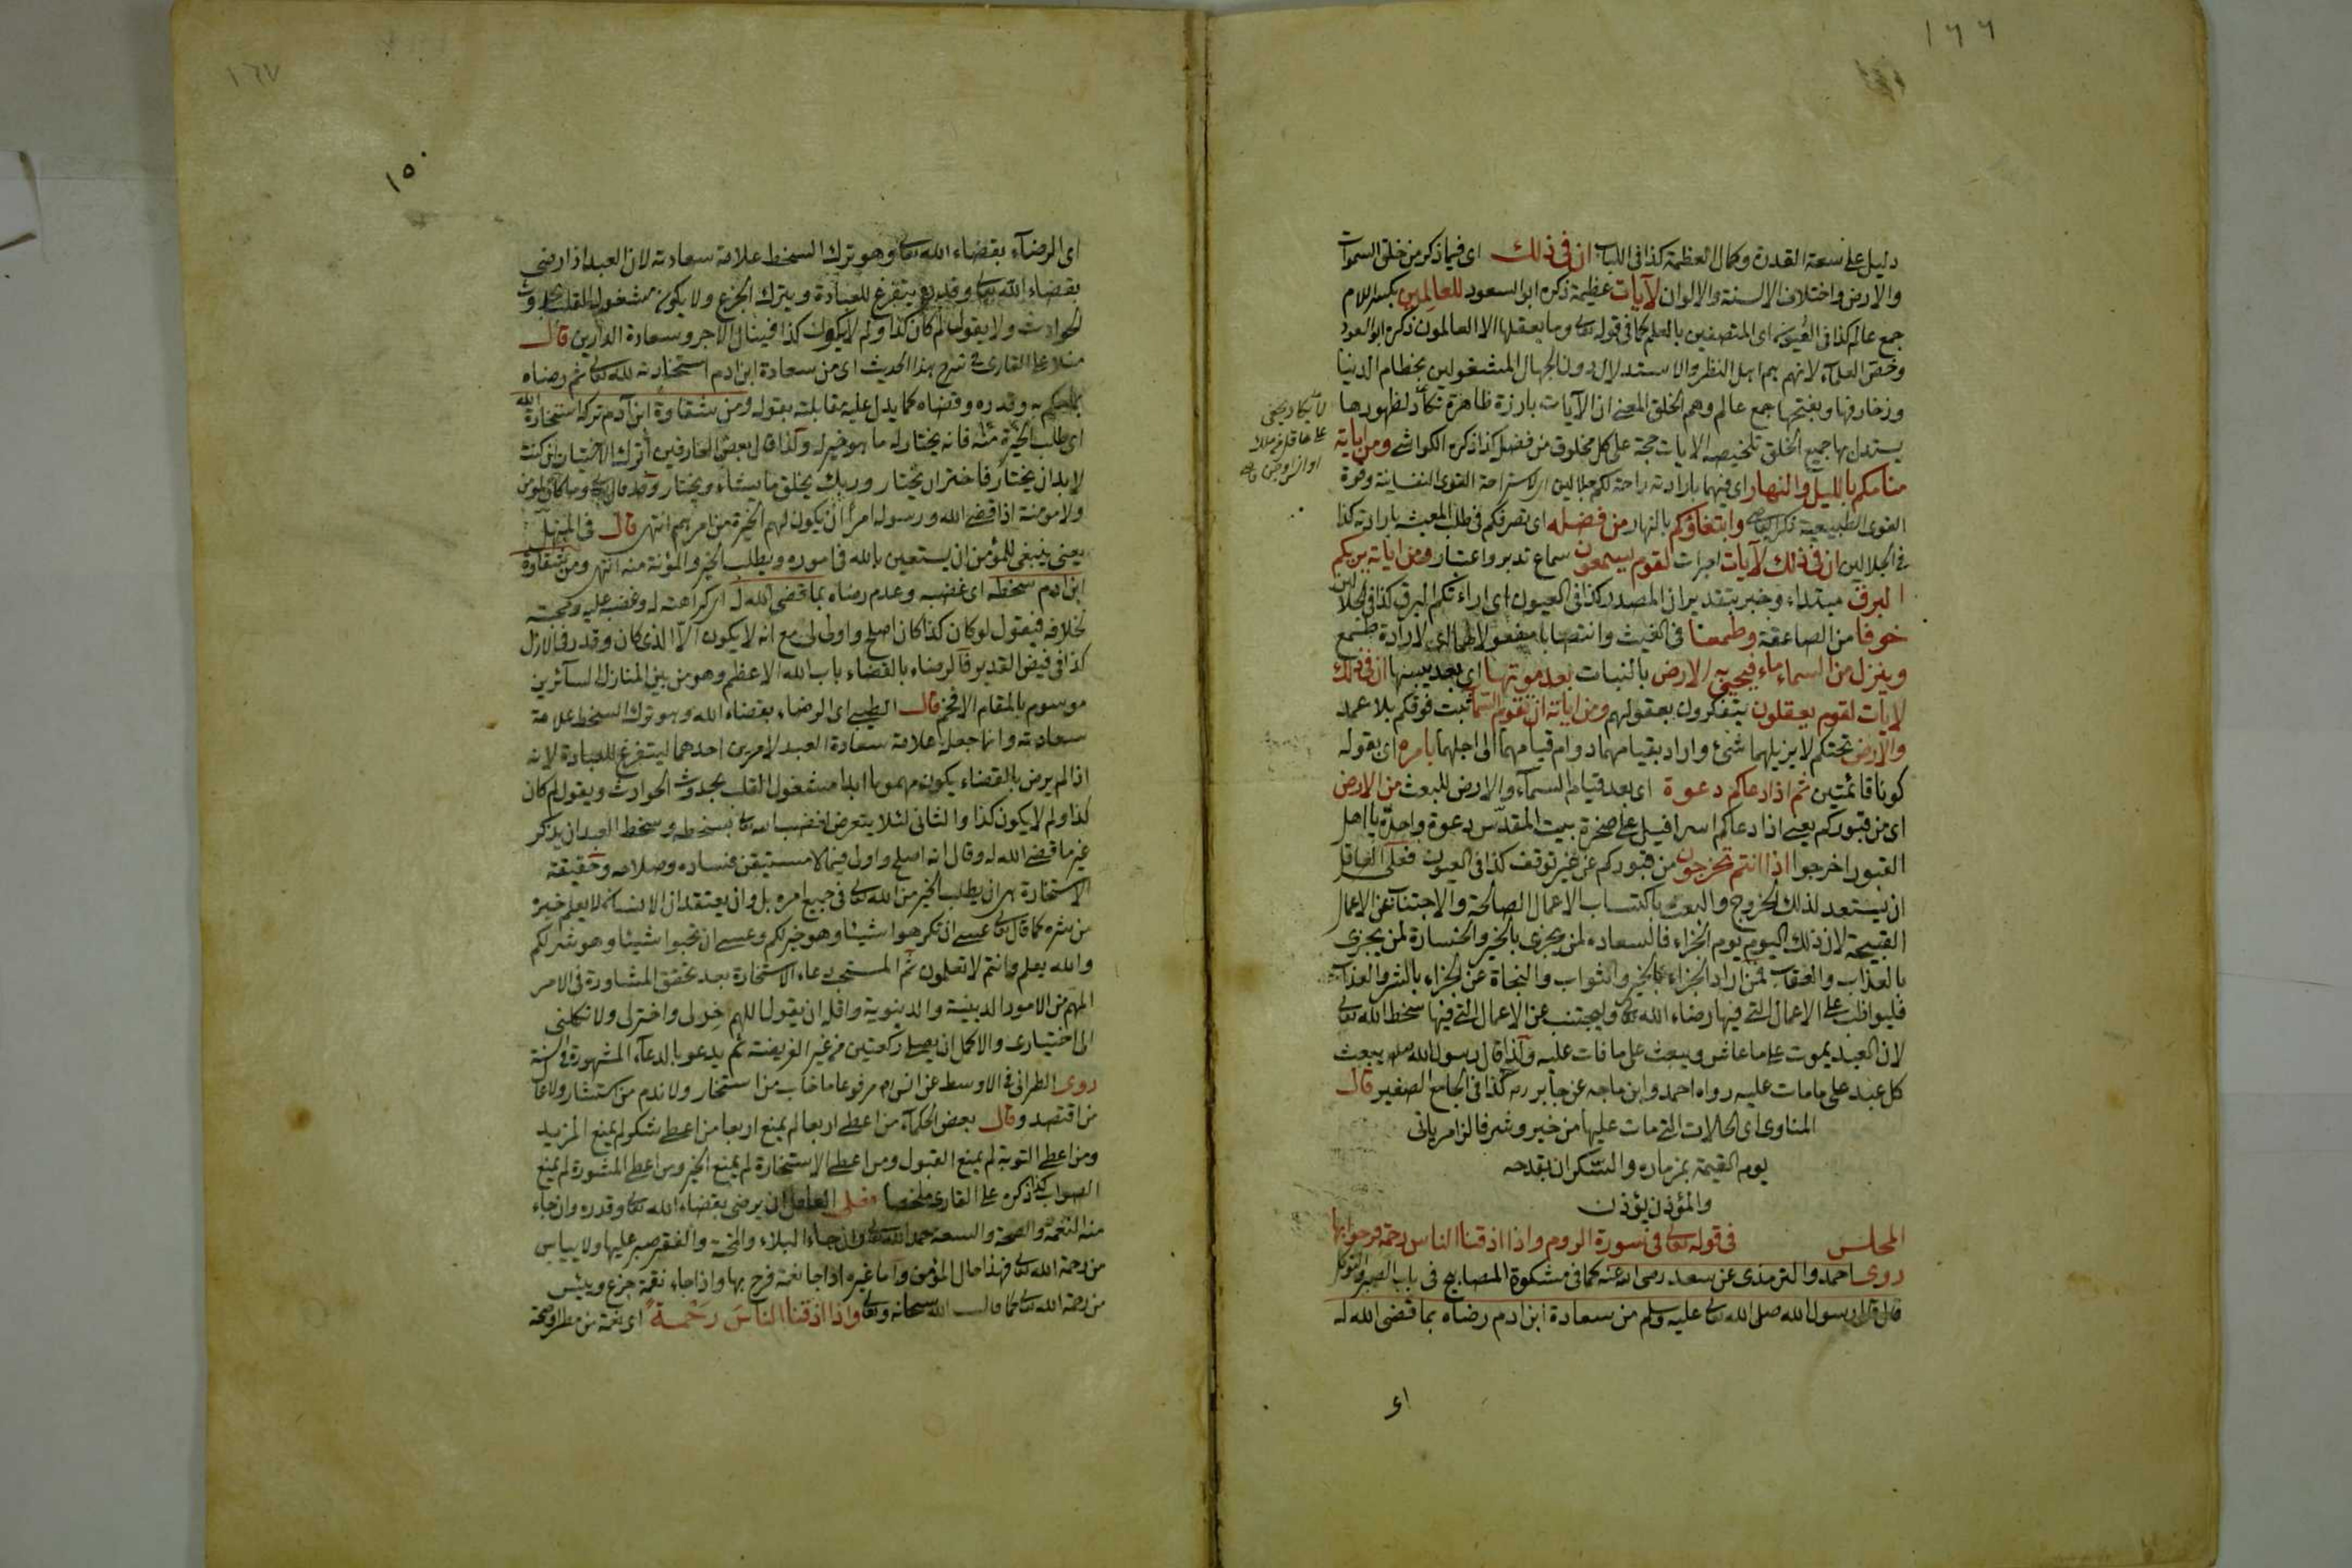 ١٦٦
دليل على سعة القدرة وكمال العظمة كذا فى اللباب ان فى ذلك اى فيما ذكر من خلق السموات
والارض واختلاف الالسنة والالوان لآيات عظيمة ذكره ابو السعود للعالِمِين بكسر اللام
جمع عالم كذا فى العيون اى المتصفين بالعلم كما فى قوله تعالى وما يعقلها الا العالمون ذكره ابو السعود
وخص العلماء لانهم هم اهل النظر والاستدلال دون الجهال المشغولين بحطام الدنيا
وزخارفها وبفتحها جمع عالم وهم الخلق المعنى ان الآيات بارزة ظاهرة تكاد لظهورها
يستدل بها جميع الخلق تلخيصه الايات حجة على كل مخلوق من فضل كذا ذكره الكواشى ومن آياته
منامكم بالليل والنهار اى فيهما بارادته راحة لكم جلالين اى لاستراحة القوى النفسانية وقوة
القوى الطبيعية وابتغاؤكم بالنهار من فضله اى تصرفكم فى طلب المعيشة بارادته كذا
فى الجلالين ان فى ذلك لآيات لقوم يسمعون سماع تدبر واعتبار ومن آياته يريكم
البرق مبتداء وخبر بتقدير ان المصدر كذا فى العيون اى اراءتكم البرق كذا فى الجلالين
خوفا من الصاعقة وطمعا فى الغيث وانتصابها مفعولا لهما اى لارادة طمع
وينزل من السماء ماء فيحيى به الارض بالنبات بعد موتها اى بعد يبسها ان فى ذلك
لايات لقوم يعقلون يتفكرون بعقولهم ومن اياته ان تقوم السماء ثبت فوقكم بلا عمد
والارض تحتكم لا يزيلهما شئ واراد بقيامهما دوام قيامهما الى اجلهما بامره اى بقوله
كونا قائمتين ثم اذا دعاكم دعوة اى بعد قيام السماء والارض للبعث من الارض
اى من قبوركم يعنى اذا دعاكم اسرافيل على صخرة بيت المقدس دعوة واحدة يا اهل
القبور اخرجوا اذا انتم تخرجون من قبوركم عن غير توقف كذا فى العيون فعلى العاقل
ان يستعد لذلك الخروج والبعث باكتساب الاعمال الصالحة والاجتناب عن الاعمال
القبيحة لان ذلك اليوم يوم الجزاء فالسعاده لمن يجزى بالخير والخسارة لمن يجزى
بالعذاب والعقاب فمن اراد الجزاء بالخير والثواب والنجاة عن الجزاء بالشر والعذاب
فليواظب على الاعمال التى فيها رضاء الله تعالى وليجتنب عن الاعمال التى فيها سخط الله تعالى
لان العبد يموت على ما عاش ويبعث على ما مات عليه ولذا قال رسول الله صلعم يبعث
كل عبد على ما مات عليه رواه احمد وابن ماجه عن جابر رضه كذا فى الجامع الصغير قال
المناوى اى الحالات التى مات عليها من خير وشر فالزامر يأتى
يوم القيمة بمزماره والسكران بقدحه
والمؤذن يؤذن
المجلس فى قوله تعالى فى سورة الروم واذا اذقنا الناس رحمة فرحوا بها
روى احمد والترمذى عن سعد رضى الله عنه كما فى مشكوة المصابيح فى باب الصبر والتوكل
قال قال رسول الله صلى الله تعالى عليه وسلم من سعادة ابن ادم رضاه بما قضى الله له
١٦٧
١٥٠
اى الرضاء بقضاء الله تعالى وهو ترك السخط علامة سعادته لان العبد اذا رضى
بقضاء الله تعالى وقدره يتفرغ للعبادة ويترك الجزع ولا يكون مشغول القلب بحدوث
الحوادث ولا يقول لم كان كذا ولم لا يكون كذا فينال الاجر وسعادة الدارين قال
منلا على القارى فى شرح هذا الحديث اى من سعادة ابن ادم استخارته لله تعالى ثم رضاه
بحكم به وقدره وقضاه كما يدل عليه مقابلته بقوله ومن شقاوة ابن آدم تركه استخارة الله
اى طلب الخيرة منه فانه يختار له ما هو خير له ولذا قال بعض العارفين اترك الاختيار ان كنت
لا بد ان يختار فاختر ان تختار وربك يخلق ما يشاء ويختار وقد قال تعالى وما كان لمؤمن
ولا مؤمنة اذا قضى الله ورسوله امرا ان يكون لهم الخيرة من امرهم انتهى قال فى المنهل
يعنى ينبغى للمؤمن ان يستعين بالله فى اموره ويطلب الخير والمؤنة منه انتهى ومن شقاوة
ابن ادم سخطه اى غضبه وعدم رضاه بما قضى الله له اى كراهته له وغضبه عليه ومحبته
لخلافه فيقول لو كان كذا كان اصلح واولى لى مع انه لا يكون الا الذى كان وقدر فى الازل
كذا فى فيض القدير فالرضاء بالقضاء باب الله الاعظم وهو من بين المنازل السائرين
موسوم بالمقام الافخم قال الطيبى اى الرضاء بقضاء الله وهو ترك السخط علامة
سعادته وانما جعله علامة سعادة العبد لامرين احدهما ليتفرغ للعبادة لانه
اذا لم يرض بالقضاء يكون مهموما ابدا مشغول القلب بحدوث الحوادث ويقول لم كان
كذا ولم لا يكون كذا والثانى لئلا يتعرض لغضب الله تعالى بسخطه وسخط العبد ان يذكر
غير ما قضى الله له وقال انه اصلح واولى فيما لا يستيقن فساده وصلاحه وحقيقة
الاستخارة هى ان يطلب الخير من الله تعالى فى جميع امره بل وان يعتقد ان الانسان لا يعلم خيره
من شره كما قال تعالى عسى ان تكرهوا شيئا وهو خير لكم وعسى ان تحبوا شيئا وهو شر لكم
والله يعلم وانتم لا تعلمون ثم المستحب دعاء الاستخارة بعد تحقق المشاورة فى الامر
المهم من الامور الدينية والدينوية واقله ان يقول اللهم خر لى واختر لى ولا تكلنى
الى اختيارى والاكمل ان يصلى ركعتين من غير الفريضة ثم يدعو بالدعاء المشهورة فى السنة
روى الطبرانى فى الاوسط عن انس مرفوعا ما خاب من استخار ولا ندم من استشار ولا عال
من اقتصد وقال بعض الحكماء من اعطى اربعا لم يمنع اربعا من اعطى الشكر لم يمنع المزيد
ومن اعطى التوبة لم يمنع القبول ومن اعطى الاستخارة لم يمنع الخير ومن اعطى المشورة لم يمنع
الصواب كذا ذكره على القارى ملخصا فعلى العاقل ان يرضى بقضاء الله تعالى وقدره وان جاء
منه النعمة والصحة والسعة حمد الله تعالى وان جاء البلاء والمحنة والفقر صبر عليها ولا ييأس
من رحمة الله تعالى فهذا حال المؤمن واما غيره اذا جاء نعمة فرح بها واذا جاء نقمة جزع ويئس
من رحمة الله تعالى كما قال الله سبحانه وتعالى واذا اذقنا الناس رحمة اى نعمة من مطر وصحة